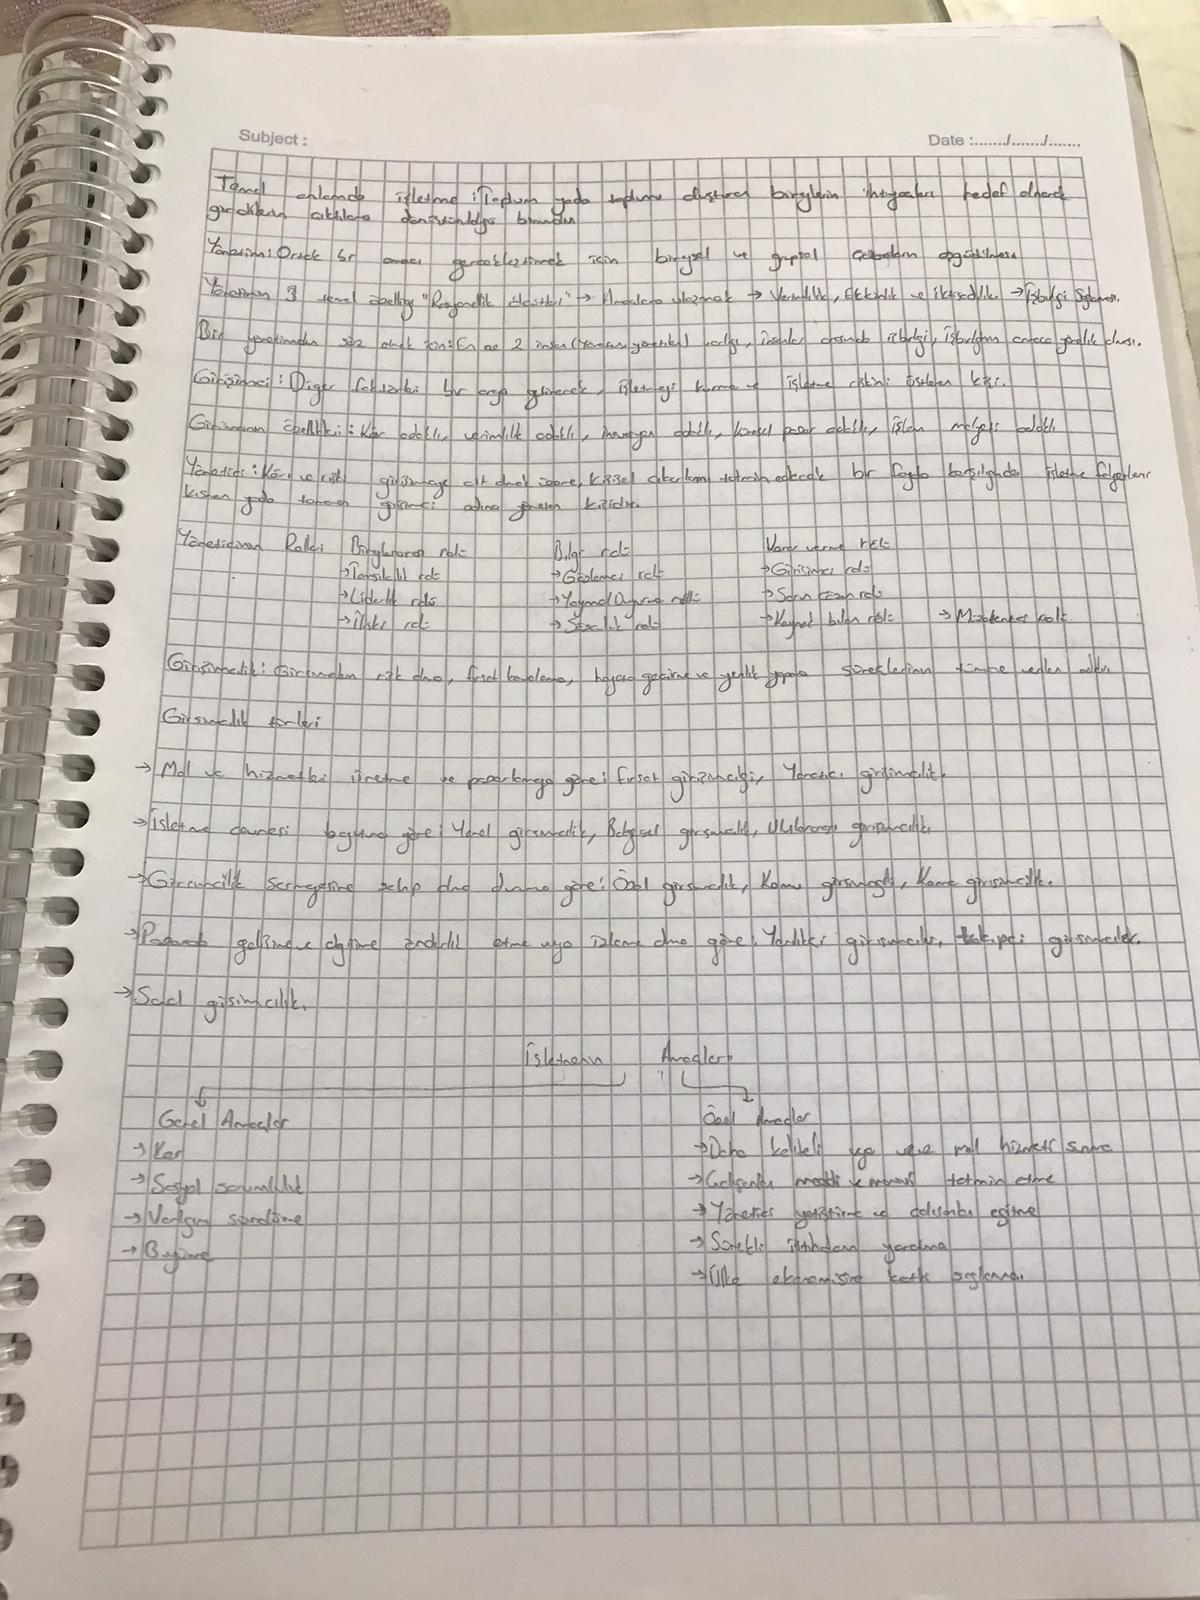 Subject :
Date :......./......./.......
Temel anlamda işletme : Toplum yada toplumu oluşturan bireylerin ihtiyaçları hedef alınarak
girdilerin çıktılara dönüştürüldüğü birimdir
Yönetim: Ortak bir amacı gerçekleştirmek için bireysel ve grupsal çabaların
Yönetimin 3 temel özelliği "Rasyonellik Ölçütleri" → Amaçlara ulaşmak → Verimlilik, Etkinlik ve iktisadilik. → İşbirliği Sağlaması.
Bir yönetimden söz etmek için: En az 2 insan (Yöneten yönetilen) varlığı, insanlar arasında işbirliği, işbirliğinin amaca yönelik olması.
Girişimci : Diğer faktörleri bir araya getirerek, işletmeyi kurma ve işletme riskini üstlenen kişi.
Girişimcinin özellikleri : Kâr odaklı, verimlilik odaklı, inovasyon odaklı, küresel pazar odaklı, işlem maliyeti odaklı
Yönetici : Kârı ve riski girişimciye ait olmak üzere, kişisel çıkarlarını tatmin edecek bir fayda karşılığında işletme faaliyetlerini
kısmen yada tamamen girişimci adına yöneten kişidir.
Yöneticinin Rolleri Bireylerarası rolü Bilgi rolü Karar verme rolü
→Temsilcilik rolü →Gözlemci rolü →Girişimci rolü
→Liderlik rolü →Yayma/Duyurma rolü →Sorun Çözen rolü
→İlişki rolü →Sözcülük rolü →Kaynak bulan rolü →Müzakereci rolü
Girişimcilik: Girişimcilerin risk alma, fırsat kovalama, hayata geçirme ve yenilik yapma süreçlerinin tümüne verilen addır.
Girişimcilik türleri
→Mal ve hizmetleri üretme ve pazarlamaya göre: fırsat girişimciliği, Yaratıcı girişimcilik.
→İşletme çevresi boyutuna göre: Yerel girişimcilik, Bölgesel girişimcilik, Uluslararası girişimcilik
→Girişimcilik sermayesine sahip olma durumuna göre: Özel girişimcilik, Kamu girişimciliği, Karma girişimcilik.
→Pazarda gelişme ve değişime önderlik etme veya izleme olma göre: Yenilikçi girişimciler, takipçi girişimciler.
→Sosyal girişimcilik.
İşletmenin Amaçları
Genel Amaçlar Özel Amaçlar
→Kar →Daha kaliteli veya ucuz mal hizmeti sunma
→Sosyal sorumluluk →Çalışanları maddi ve manevi tatmin etme
→Varlığını sürdürme →Yönetici yetiştirme ve çalışanları eğitme
→Büyüme →Sürekli istihdam yaratma
→Ülke ekonomisine katkı sağlama.